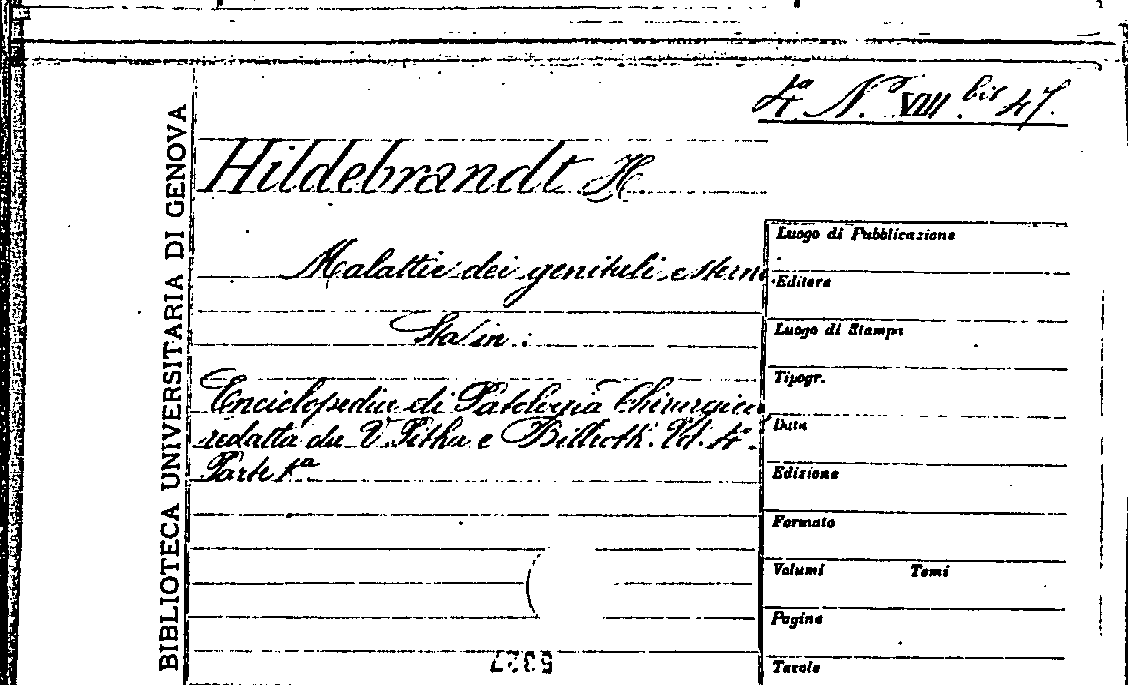 4ª N. VIII bis 47.
BIBLIOTECA UNIVERSITARIA DI GENOVA
Hildebrandt H.
Malattie dei genitali esterni
Sta in:
Enciclopedia di Patologia Chirurgica
redatta da V. Pitha e Billroth. Vol. 4º.
Parte 1ª
Luogo di Pubblicazione
Editore
Luogo di Stampa
Tipogr.
Data
Edizione
Formato
Volumi Tomi
Pagine
Tavole
5327